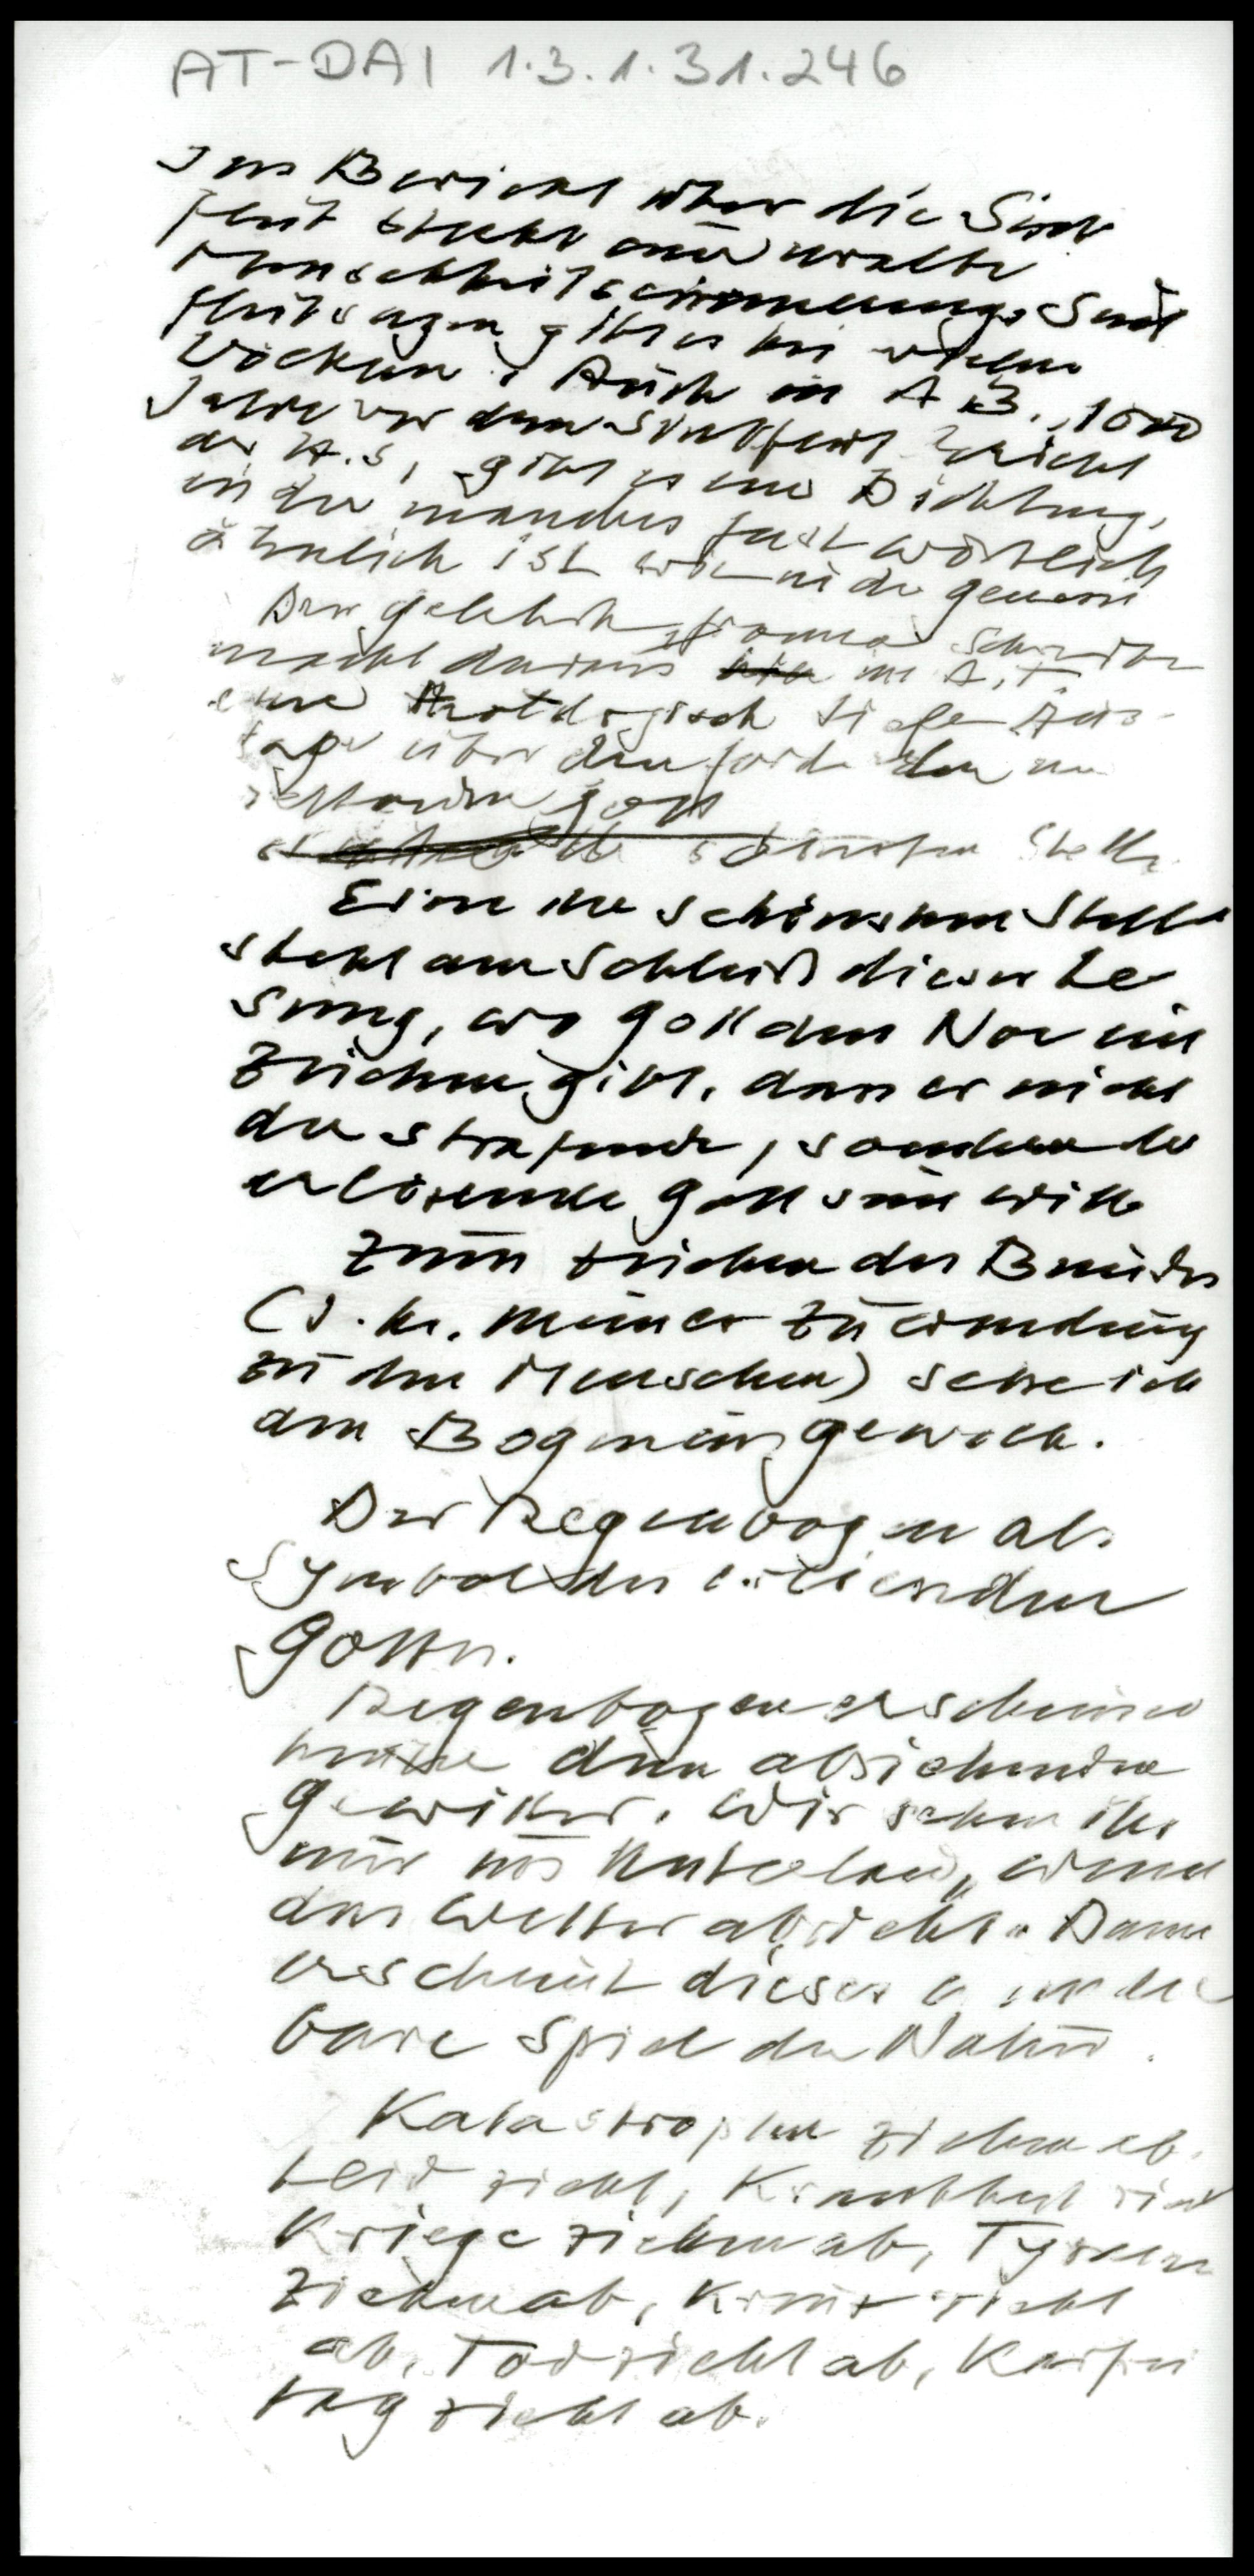 AT-DAI 1.3.1.31.246
Im Bericht über die Sint
flut steckt eine uralte
Menschheitserinnerung. Sint
flutsagen gibt es bei vielen
Völkern. Auch in A B., 1000
Jahre vor dem Sintflutbericht
der H.S, gibt es eine Dichtung,
in der manches fast wörtlich
ähnlich ist wie in der
Der gelehrte fromme Schreiber
macht daraus im A.T.
eine theologisch tiefe Aus-
sage über den
Gott
schönsten Stelle
Eine der schönsten Stelle
steht am Schluß dieser Le
sung, wo Gott dem Noe ein
Zeichen gibt, dass er nicht
der strafende, sondern der
erlösende Gott sein will
Zum Zeichen des Bundes
(d. h. meiner Zuwendung
zu den Menschen) setze ich
den Bogen ins Gewölk.
Der Regenbogen als
Symbol des erlösenden
Gottes.
Regenbogen erscheinen
hinter dem abziehenden
Gewitter. Wir sehen ihn
nur ins Hinterland, wenn
das Wetter abzieht. Dann
erscheint dieses wunder
bare Spiel der Natur.
Katastrophen ziehen ab.
Leid zieht, Krankheit zieht
Kriege ziehen ab, Tyrannen
ziehen ab, Kreuz zieht
ab, Tod zieht ab, Karfrei
tag zieht ab.